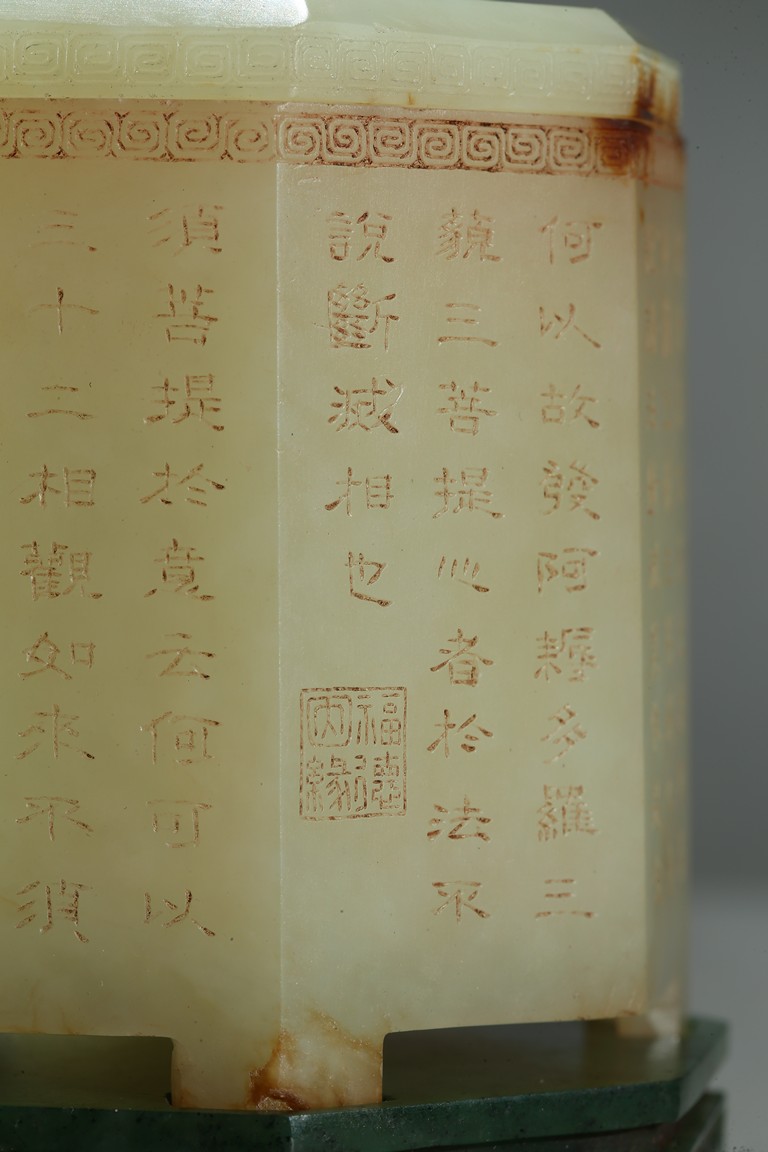 何以故發阿耨多羅三
藐三菩提心者於法不
說斷滅相也
福德因緣
須菩提於意云何可以
三十二相觀如來不須